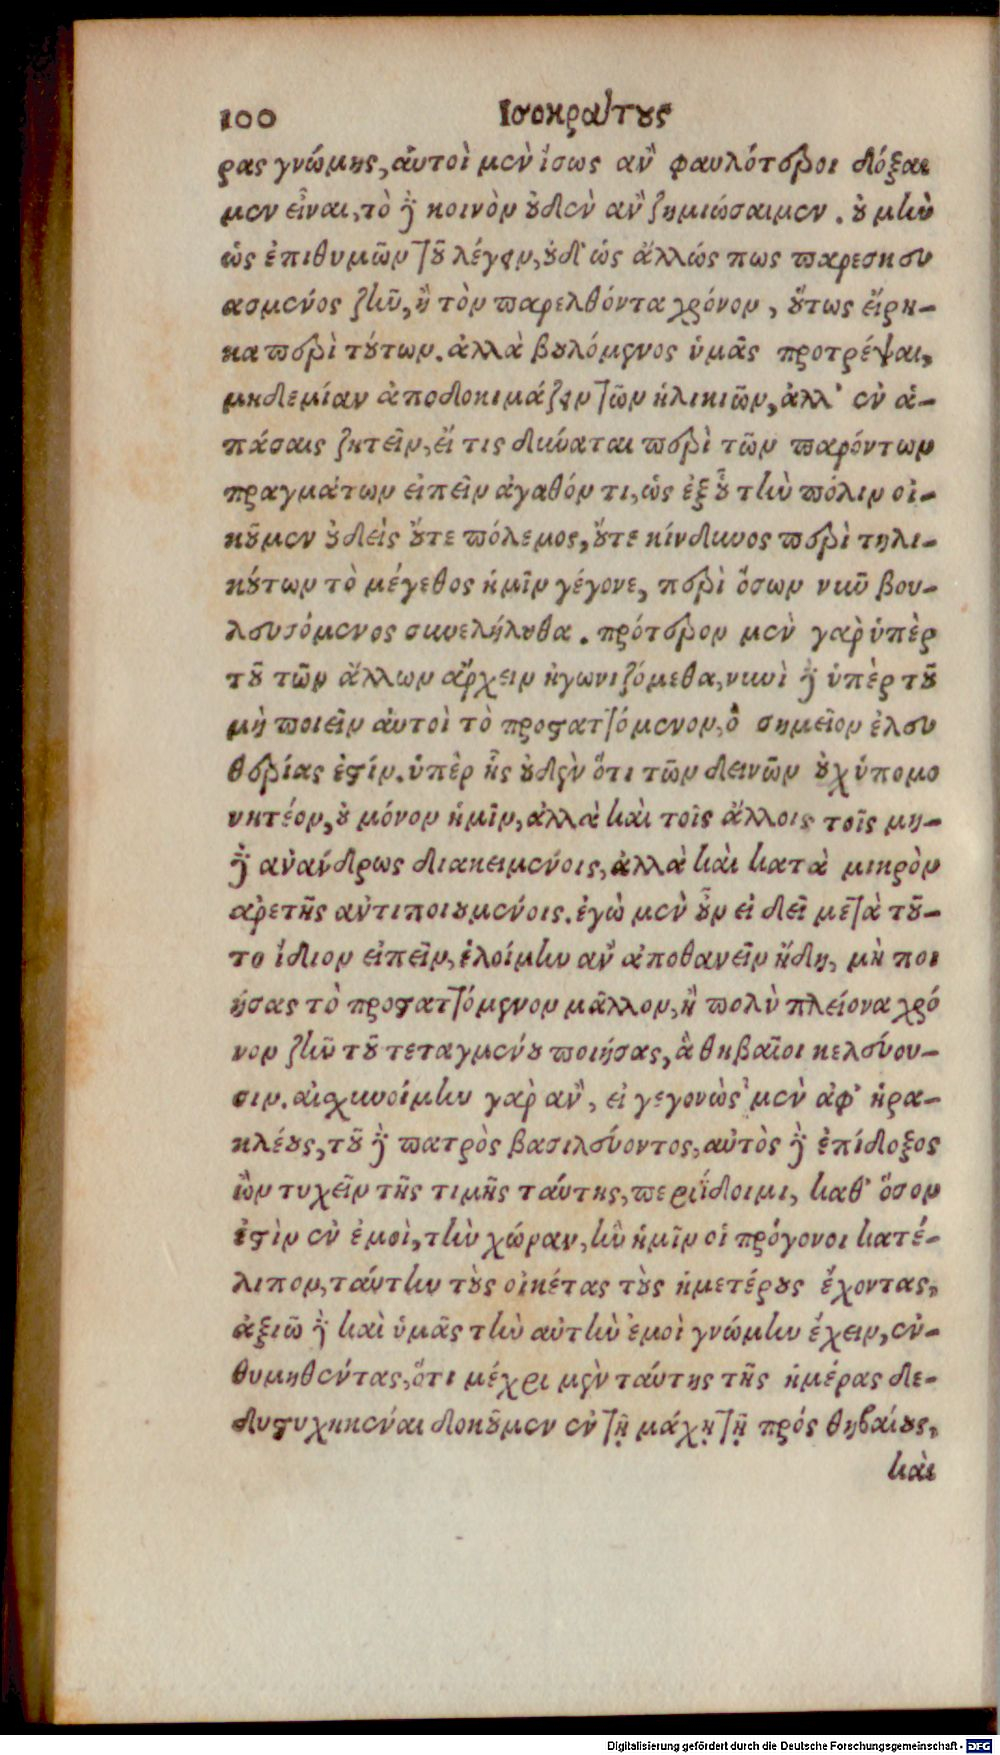 100 Ισοκράτους
ρας γνώμης, αὐτοὶ μὲν ἴσως ἂν φαυλότεροι δόξαι
μεν εἶναι, τὸ δὲ κοινὸν οὐδὲν ἂν ζημιώσαιμεν. οὐ μὴν
ὡς ἐπιθυμῶν τοῦ λέγειν, οὐδ' ὡς ἄλλως πως παρεσκευ
ασμένος ζῆν, ἢ τὸν παρελθόντα χρόνον, οὕτως εἴρη-
κα περὶ τούτων. ἀλλὰ βουλόμενος ὑμᾶς προτρέψαι,
μηδεμίαν ἀποδοκιμάζειν τῶν ἡλικιῶν, ἀλλ' ἐν ἁ-
πάσαις ζητεῖν, εἴ τις δύναται περὶ τῶν παρόντων
πραγμάτων εἰπεῖν ἀγαθόν τι, ὡς ἐξ οὗ τὴν πόλιν οἰ-
κοῦμεν οὐδεὶς οὔτε πόλεμος, οὔτε κίνδυνος περὶ τηλι-
κούτων τὸ μέγεθος ἡμῖν γέγονε, περὶ ὅσων νῦν βου-
λευσόμενος συνελήλυθα. πρότερον μὲν γὰρ ὑπὲρ
τοῦ τῶν ἄλλων ἄρχειν ἠγωνιζόμεθα, νυνὶ δὲ ὑπὲρ τοῦ
μὴ ποιεῖν αὐτοὶ τὸ προσταττόμενον, ὃ σημεῖον ἐλευ
θερίας ἐστίν. ὑπὲρ ἧς οὐδὲν ὅτι τῶν δεινῶν οὐχ ὑπομο
νητέον, οὐ μόνον ἡμῖν, ἀλλὰ καὶ τοῖς ἄλλοις τοῖς μη-
δὲ ἀνάνδρως διακειμένοις, ἀλλὰ καὶ κατὰ μικρὸν
ἀρετῆς ἀντιποιουμένοις. ἐγὼ μὲν οὖν εἰ δεῖ μετὰ τοῦ-
το ἴδιον εἰπεῖν, ἑλοίμην ἂν ἀποθανεῖν ἤδη, μὴ ποι
ήσας τὸ προσταττόμενον μᾶλλον, ἢ πολὺ πλείονα χρό
νον ζῆν τοῦ τεταγμένου ποιήσας, ἃ θηβαῖοι κελεύου-
σιν. αἰσχυνοίμην γὰρ ἂν, εἰ γεγονὼς μὲν ἀφ' ἡρα-
κλέους, τοῦ δὲ πατρὸς βασιλεύοντος, αὐτὸς δὲ ἐπίδοξος
ὢν τυχεῖν τῆς τιμῆς ταύτης, περιΐδοιμι, καθ' ὅσον
ἐστὶν ἐν ἐμοὶ, τὴν χώραν, ἣν ἡμῖν οἱ πρόγονοι κατέ-
λιπον, ταύτην τοὺς οἰκέτας τοὺς ἡμετέρους ἔχοντας,
ἀξιῶ δὲ καὶ ὑμᾶς τὴν αὐτὴν ἐμοὶ γνώμην ἔχειν, ἐν-
θυμηθέντας, ὅτι μέχρι μὲν ταύτης τῆς ἡμέρας δε-
δυστυχηκέναι δοκοῦμεν ἐν τῇ μάχῃ τῇ πρός θηβαίους,
καὶ
Digitalisierung gefördert durch die Deutsche Forschungsgemeinschaft - DFG